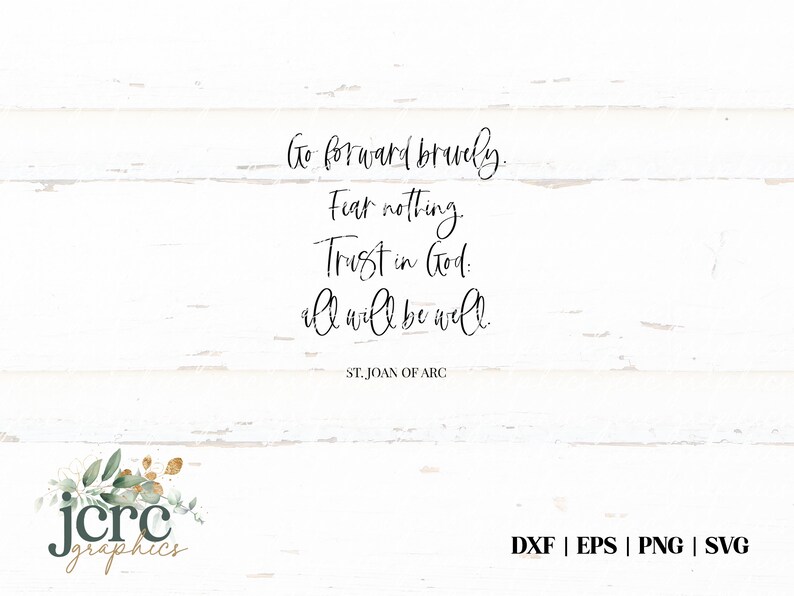 Go forward bravely.
Fear nothing.
Trust in God:
all will be well.
ST. JOAN OF ARC
jcrc
graphics
DXF | EPS | PNG | SVG